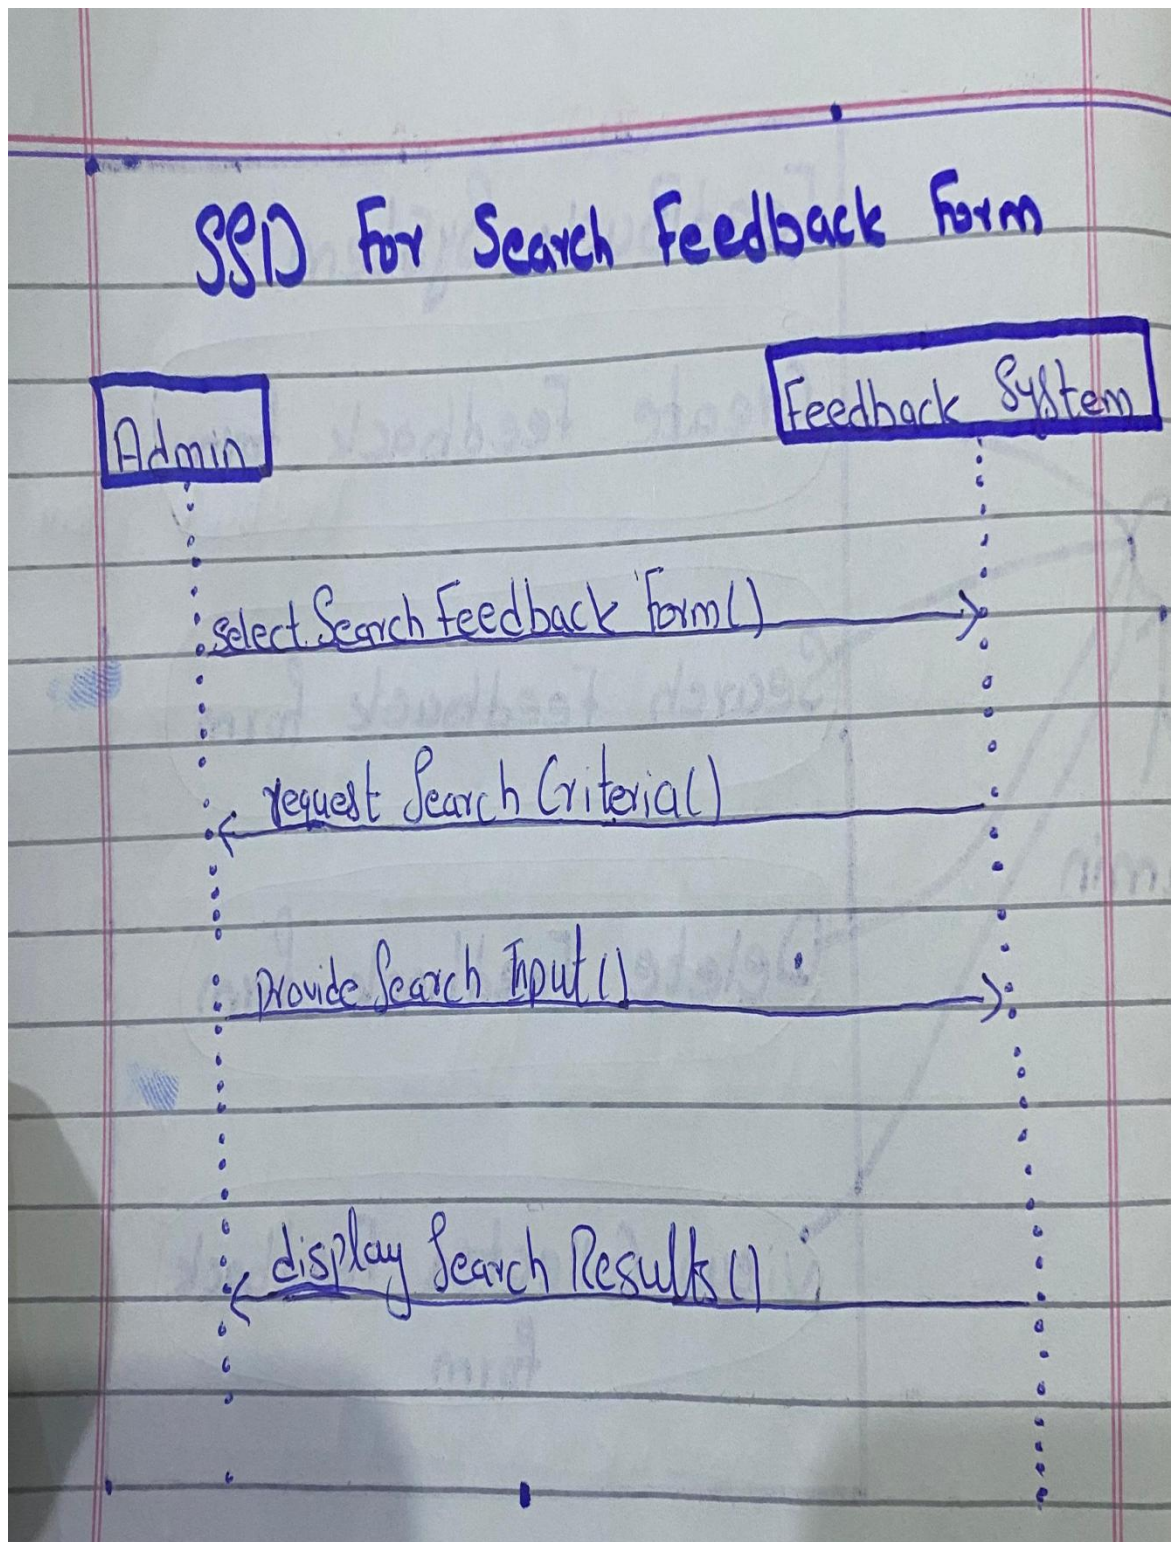 SSD For Search Feedback Form
Admin
Feedback System
select Search Feedback Form()
request Search Criteria()
provide Search Input()
display Search Results()